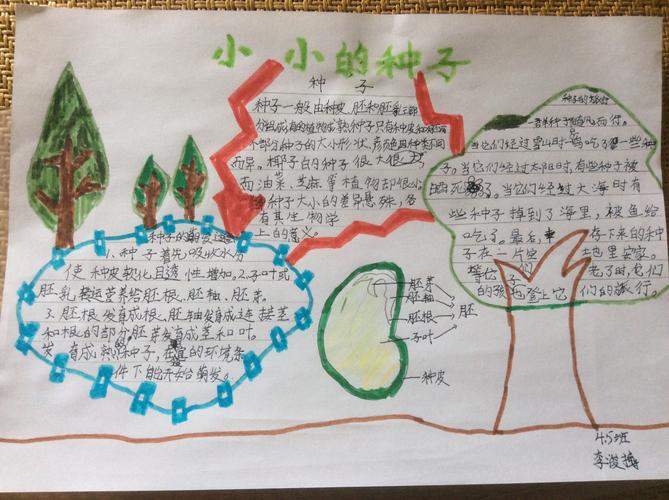 小小的种子
种子
种子一般由种皮、胚和胚乳三部
分组成,有的植物成熟种子只有种皮和胚两
部分种子的大小形状、颜色因种类不同
而异。椰子的种子很大很
而油菜、芝麻等植物却很小
种子大小的差异悬殊,各
有其生物学
上的意义。
种子的旅行
当它们经过雪山时,鸟吃了一些种
子。当它们经过太阳时,有些种子被
晒死。当它们经过大海时有
些种子掉到了海里,被鱼给
吃了。最后,存下来的种
子在一片空土也里安家。
等它们老了时,它们
的孩子登上它们的旅行。
种子的萌发过程
1.种子首先吸收水分
使种皮软化且透性增加。2.子叶或
胚乳转运营养给胚根、胚轴、胚芽。
3.胚根发育成根、胚轴发育成连接茎
和根的部分。胚芽发育成茎和叶。
发育成熟的种子,在适宜的环境条
件下能开始萌发。
胚芽
胚轴
胚根
子叶
胚
种皮
4.5班
李浚